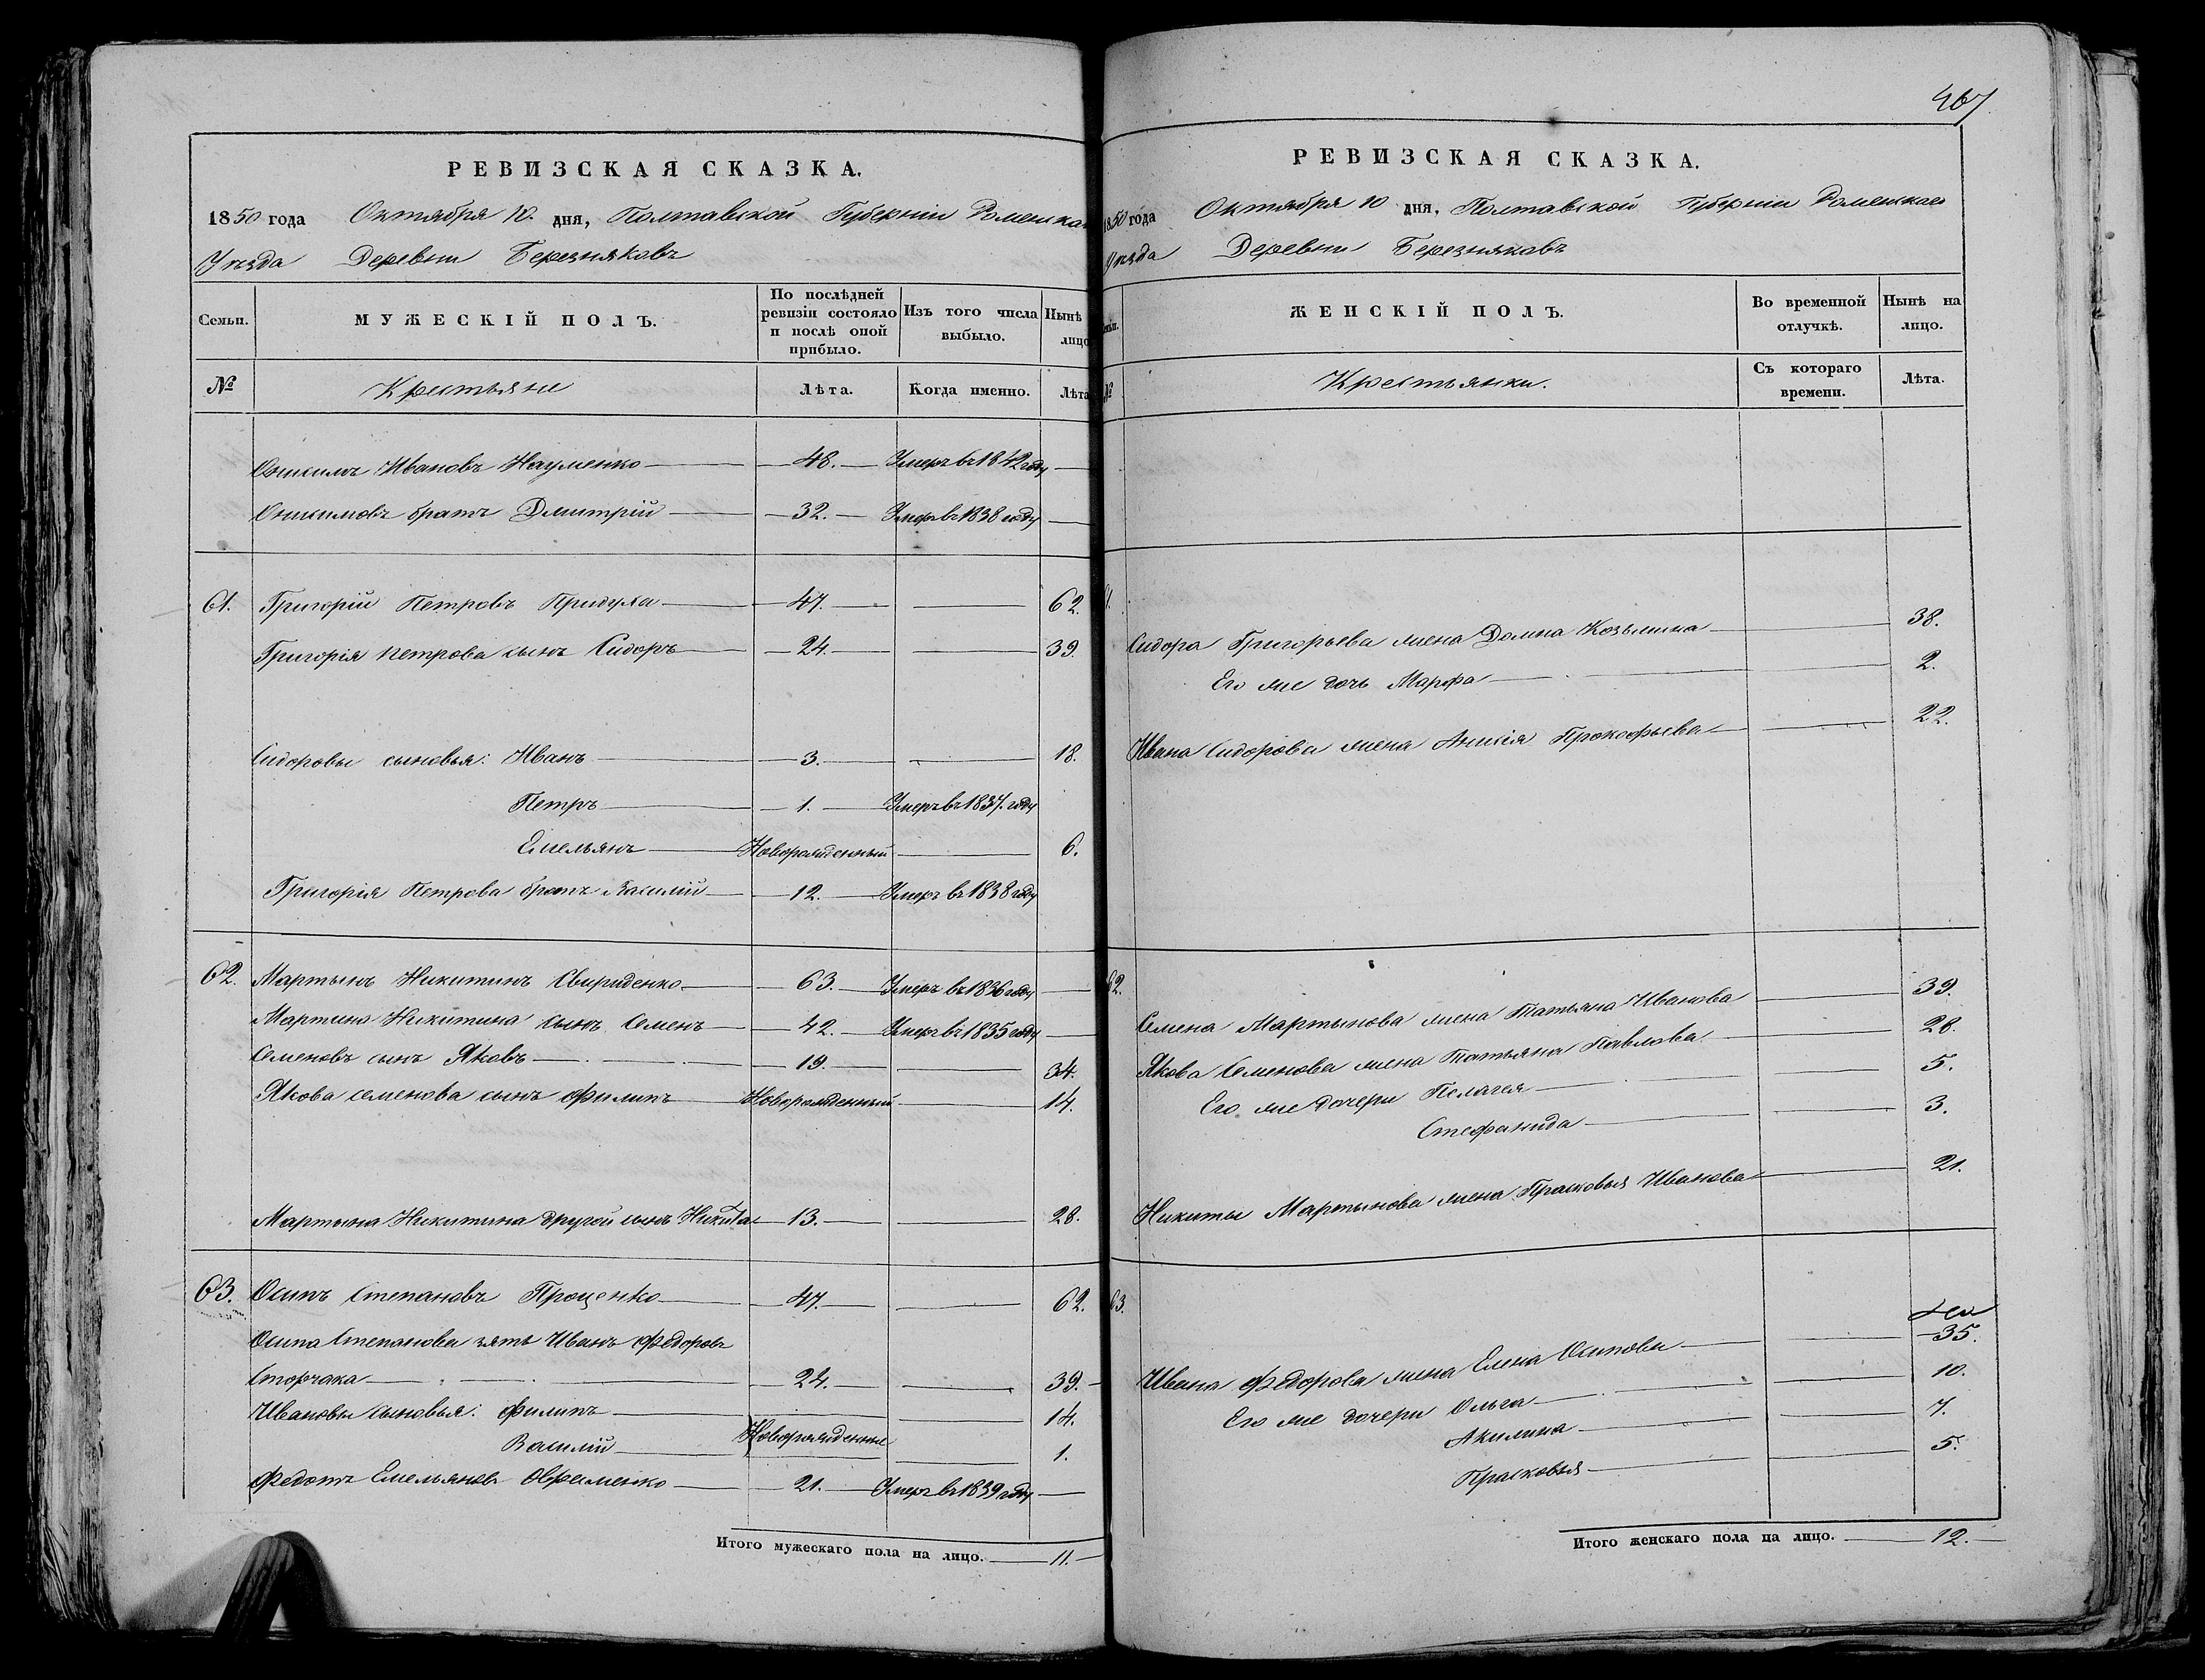 РЕВИЗСКАЯ СКАЗКА.
1850 года Октября 10 дня, Полтавской Губерніи Роменскаго
Уезда Деревни Березняковъ
Семьи. МУЖЕСКІЙ ПОЛЪ. По послѣдней ревизіи состояло и послѣ оной прибыло. Изъ того числа выбыло. Нынѣ лицо
№ Крестьяне Лѣта. Когда именно. Лѣта
Онисимъ Ивановъ Науменко 48. Умеръ въ 1842 году
Онисимовъ братъ Дмитрій 32. Умеръ въ 1838 году
61. Григорій Петровъ Придуха 47. 62.
Григорія Петрова сынъ Сидоръ 24. 39.
Сидоровы сыновья: Иванъ 3. 18.
Петръ 1. Умеръ въ 1837. году
Емельянъ Новорожденный 6.
Григорія Петрова братъ Василій 12. Умеръ въ 1838 году
62. Мартынъ Никитинъ Свириденко 63. Умеръ въ 1836 году
Мартина Никитина сынъ Семенъ 42. Умеръ въ 1835 году
Семеновъ сынъ Яковъ 19. 34.
Якова Семенова сынъ Филипъ Новорожденный 14.
Мартына Никитина другой сынъ Никита 13. 28.
63. Осипъ Степановъ Проценко 47. 62.
Осипа Степанова зять Иванъ Федоровъ
Сторчака 24. 39.
Ивановы сыновья: Филипъ 14.
Новорожденные
Василій 1.
Федотъ Емельяновъ Овраменко 21. Умеръ въ 1839 году
Итого мужескаго пола на лицо. 11.
467
РЕВИЗСКАЯ СКАЗКА.
1850 года Октября 10 дня, Полтавской Губерніи Роменскаго
Уезда Деревни Березняковъ
Семьи. ЖЕНСКІЙ ПОЛЪ. Во временной отлучкѣ. Нынѣ на лицо.
№ Крестьянки. Съ котораго времени. Лѣта.
Сидора Григорьева жена Домна Козьмина 38.
Его же дочь Марфа 2.
Ивана Сидорова жена Анисія Прокофьева 22.
62.
Семена Мартынова жена Татьяна Иванова 39.
Якова Семенова жена Татьяна Павлова 28.
Его же дочери Пелагея 5.
Стефанида 3.
Никиты Мартынова жена Прасковья Иванова 21.
63.
Ивана Федорова жена Елена Осипова 35.
Его же дочери Ольга 10.
Акилина 7.
Прасковья 5.
Итого женскаго пола на лицо. 12.